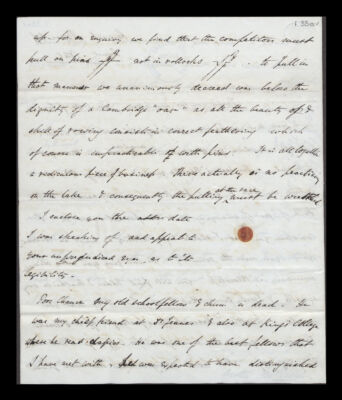 up - for on enquiry we find that the competitors must
pull on pins not in rollocks - to pull in
that manner we unanimously decreed was below the
dignity of a Cambridge "oar" as all the beauty of &
skill of rowing consists in correct feathering which
of course is impracticable with pins. It is altogether
a ridiculous piece of business there actually is no practice
on the lake & consequently the pulling at the race must be wretched
I enclose you the
I was speaking of and appeal to
your unprejudiced eyes, as to its
legibility -
Poor Chance my old schoolfellow & chum is dead. He
was my chief friend at Dr and also at King's College
where he read. He was one of the best fellows that
I have met with. & was expected to have distinguished